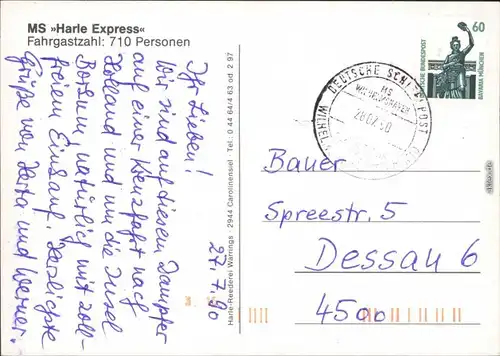 MS »Harle Express«
Fahrgastzahl: 710 Personen
27.7.90
Ihr Lieben!
Wir sind auf diesem Dampfer
auf einer Kreuzfahrt nach
Holland und um die Insel
Borkum, natürlich mit zoll-
freiem Einkauf. Herzlichste
Grüße von Herta und Werner.
Harle-Reederei Warrings · 2944 Carolinensiel · Tel.: 0 44 64/4 63 od. 2 97
DEUTSCHE SCHIFFSPOST
MS
WILHELMSHAVEN
60
DEUTSCHE BUNDESPOST
BAVARIA MÜNCHEN
Bauer
Spreestr. 5
Dessau 6
4500